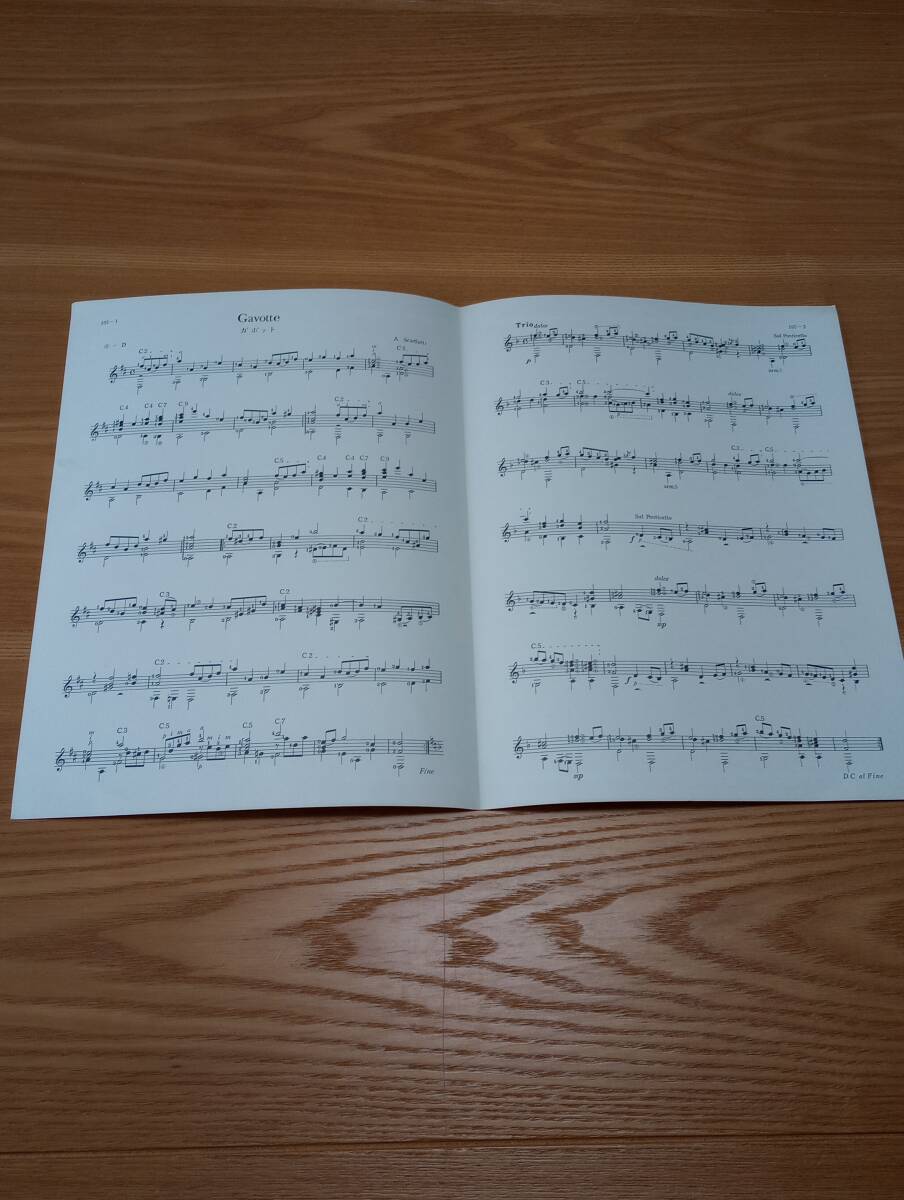 Gavotte
ガボット
A. Scarlatti
⑥ - D
C2
C5
C4 C4 C7 C9
C2
C5 C4 C4 C7 C9
C2 C2
C3 C2
C2 C2
m i C3 C5 p i m a a m i m C5 C7
Fine
Trio dolce
Sul Ponticello
p
arm.
C3 C5
dolce
C3 C5
arm.
Sul Ponticello
f
dolce
mp
C5
f p
C5
mp
D.C al Fine